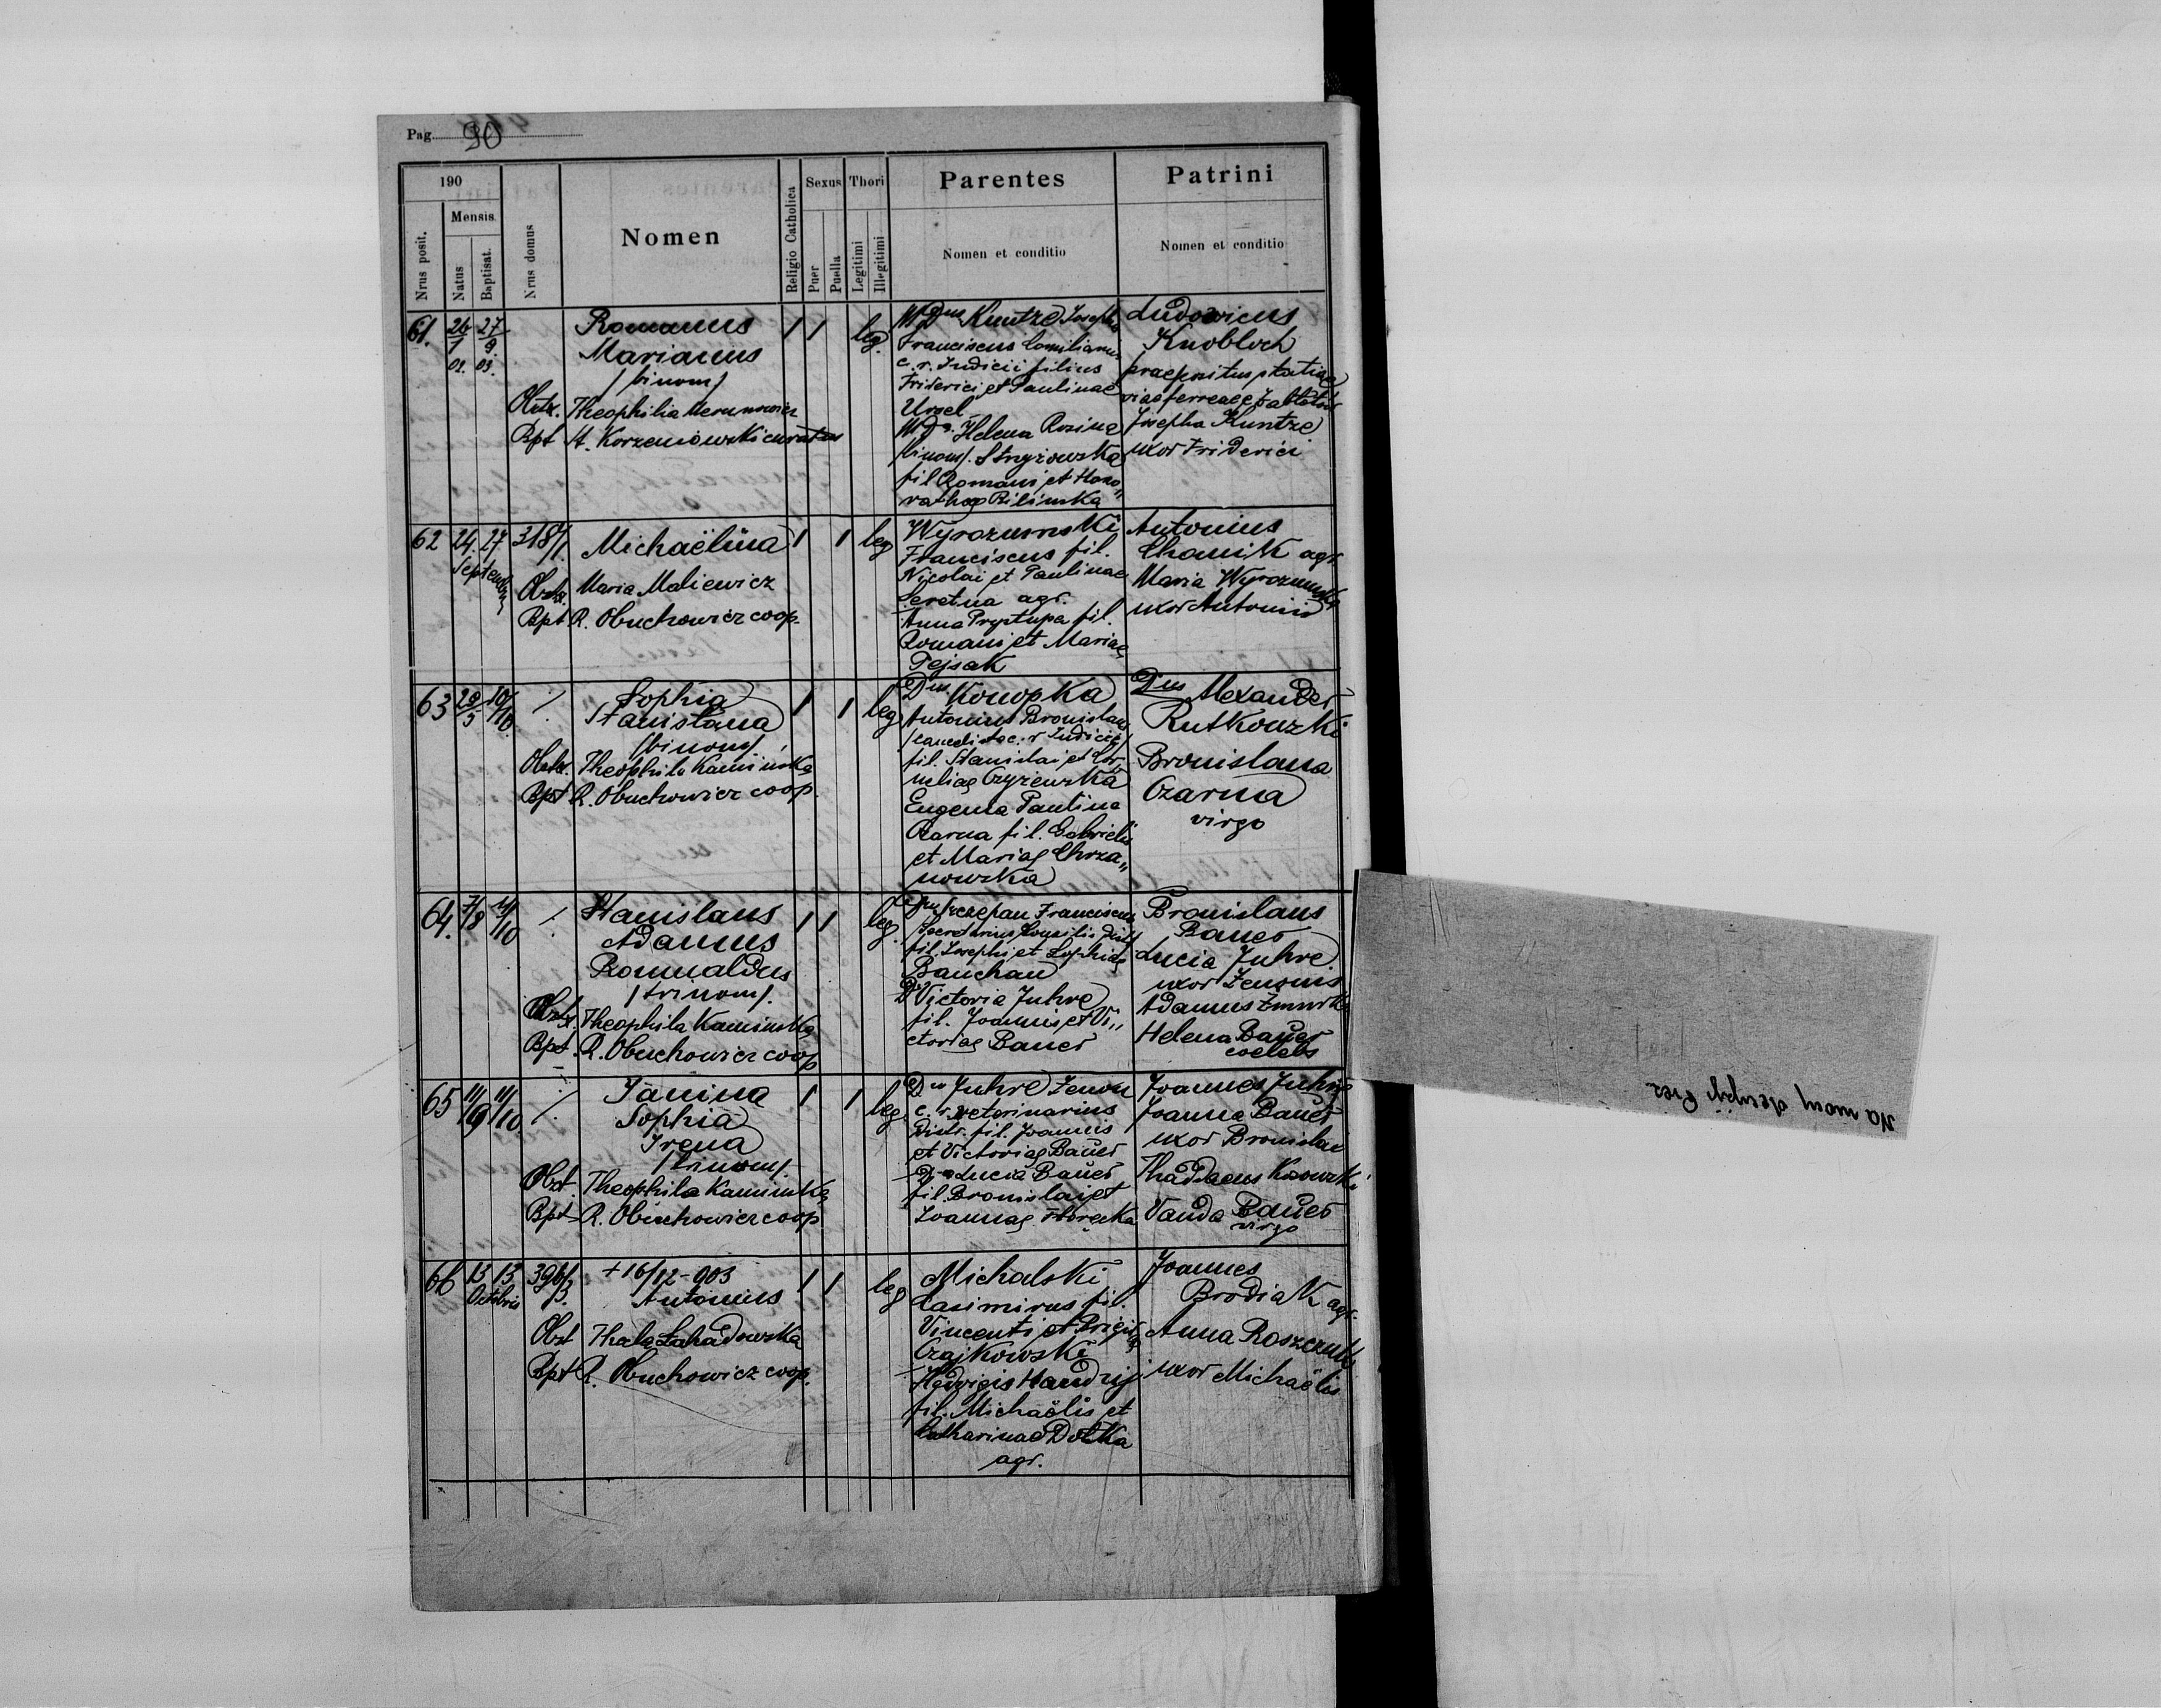 Pag. 90
190
Nrus posit.
Mensis
Natus
Baptisat.
Nrus domus
Nomen
Religio Catholica
Sexus
Puer
Puella
Thori
Legitimi
Illegitimi
Parentes
Nomen et conditio
Patrini
Nomen et conditio
61. 26/1 02. 27/9 03.
Romanus
Marianus
/binom/
Obstr. Theophilia
Bpt St. Korzeniowski curatus
1 1 leg.
Kuntze Josephus
Franciscus
c. r. Judicii filius
Friderici et Paulinae
Ursel
Helena Rosina
/binom/. Stryżowska
fil Romani et Hono„
rathae Bilinska
Ludovicus
Knobloch
praepositus statiae
viae ferreae
Josepha Kuntze
uxor Friderici
62 24. 27 Septembris 318/1
Michaëlina
Obstr. Maria Maliewicz
Bpt R. Obuchowicz coop.
1 1 leg
Wyrozumski
Franciscus fil.
Nicolai et Paulinae
Seretna agr.
Anna Prystupa fil.
Romani et Mariae
Pejsak
Antonius
Chomik agr.
Maria Wyrozumska
uxor Antonii
63 28/5 10/10 ∕.
Sophia
Stanislava
/binom/
Obstr. Theophila Kaminska
Bpt R. Obuchowicz coop.
1 1 leg
Dnus Konopka
Antonius Bronislaus
/cancelista c. r Judicii/
fil. Stanislai et Cor„
neliae Czyżewska
Eugenia Paulina
Czarna fil. Gabrielis
et Mariae Chrza„
nowska
Dnus Alexander
Rutkowski
Bronislava
Czarna
virgo
64. 7/8 11/10 ∕.
Stanislaus
Adamus
Romualdus
/trinom/.
Obstr. Theophila Kaminska
Bpt. R. Obuchowicz coop
1 1 leg.
Szczepan Franciscus
fil. Josephi et Sophiae
Bauchau
Victoria Juhre
fil. Joannis et Vi„
ctoriae Bauer
Bronislaus
Bauer
Lucia Juhre
uxor Zenonis
Adamus
Helena Bauer
coelebs
65 11/9 11/10 ∕.
Janina
Sophia
Irena
/trinom/.
Obst. Theophila Kaminska
Bpt R. Obuchowicz coop
1 1 leg.
Juhre Zenon
c. r. veterinarius
Distr. fil. Joannis
et Victoriae Bauer
Lucia Bauer
fil. Bronislai et
Joannae
Joannes Juhre
Joanna Bauer
uxor Bronislai
Thaddaeus
Vanda Bauer
virgo
66 13 13 Octobris 396/3.
+ 16/12-903
Antonius
Obst Thecla Lahadowska
Bpt R. Obuchowicz coop.
1 1 leg
Michalski
Casimirus fil.
Vincenti et Brigittae
Czajkowski
Hedvigis Handzij
fil. Michaëlis et
Catharinae Dolka
agr.
Joannes
Brodiak agr.
Anna Roszczuk
uxor Michaëlis
Na